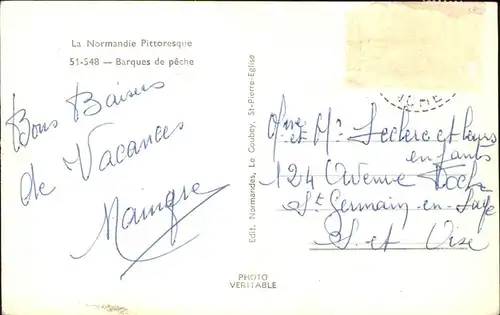 La Normandie Pittoresque
51-548 — Barques de pêche
Bons Baisers
de Vacances
Edit. Normandes, Le Goubey, St-Pierre-Eglise
Mme et Mr Leclerc et leurs
enfants
124 Avenue Foch
St Germain-en-Laye
S. et Oise
PHOTO
VERITABLE